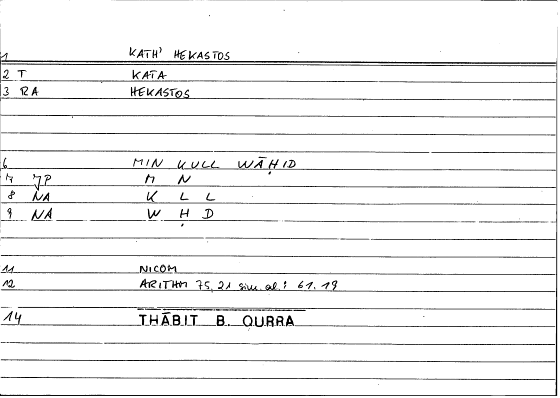 1 KATH' HEKASTOS
2 T KATA
3 RA HEKASTOS
6 MIN KULL WĀḤID
7 JP M N
8 NA K L L
9 NA W Ḥ D
11 NICOM
12 ARITHM 75, 21 sim. al.: 61. 19
14 THĀBIT B. QURRA